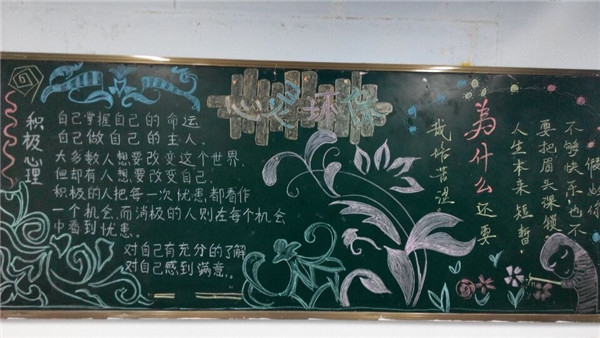 积极心理
心灵环保
自己掌握自己的命运
自己做自己的主人.
大多数人想要改变这个世界.
但却有人想要改变自己.
积极的人把每一次忧患都看作
一个机会,而消极的人则在每个机会
中看到忧患。
对自己有充分的了解
对自己感到满意。
假如你
不够快乐,也不
要把眉头深锁
人生本来短暂,
为什么还要
栽培苦涩